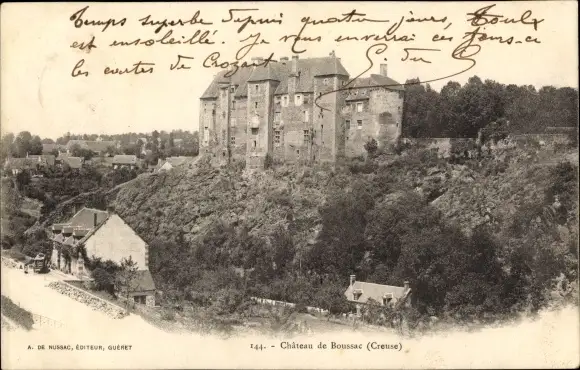 Temps superbe depuis quatre jours, Toulx
est ensoleillé. Je vous enverrai ces jours-ci
les cartes de Crozant
A. DE NUSSAC, ÉDITEUR, GUÉRET
144. - Château de Boussac (Creuse)